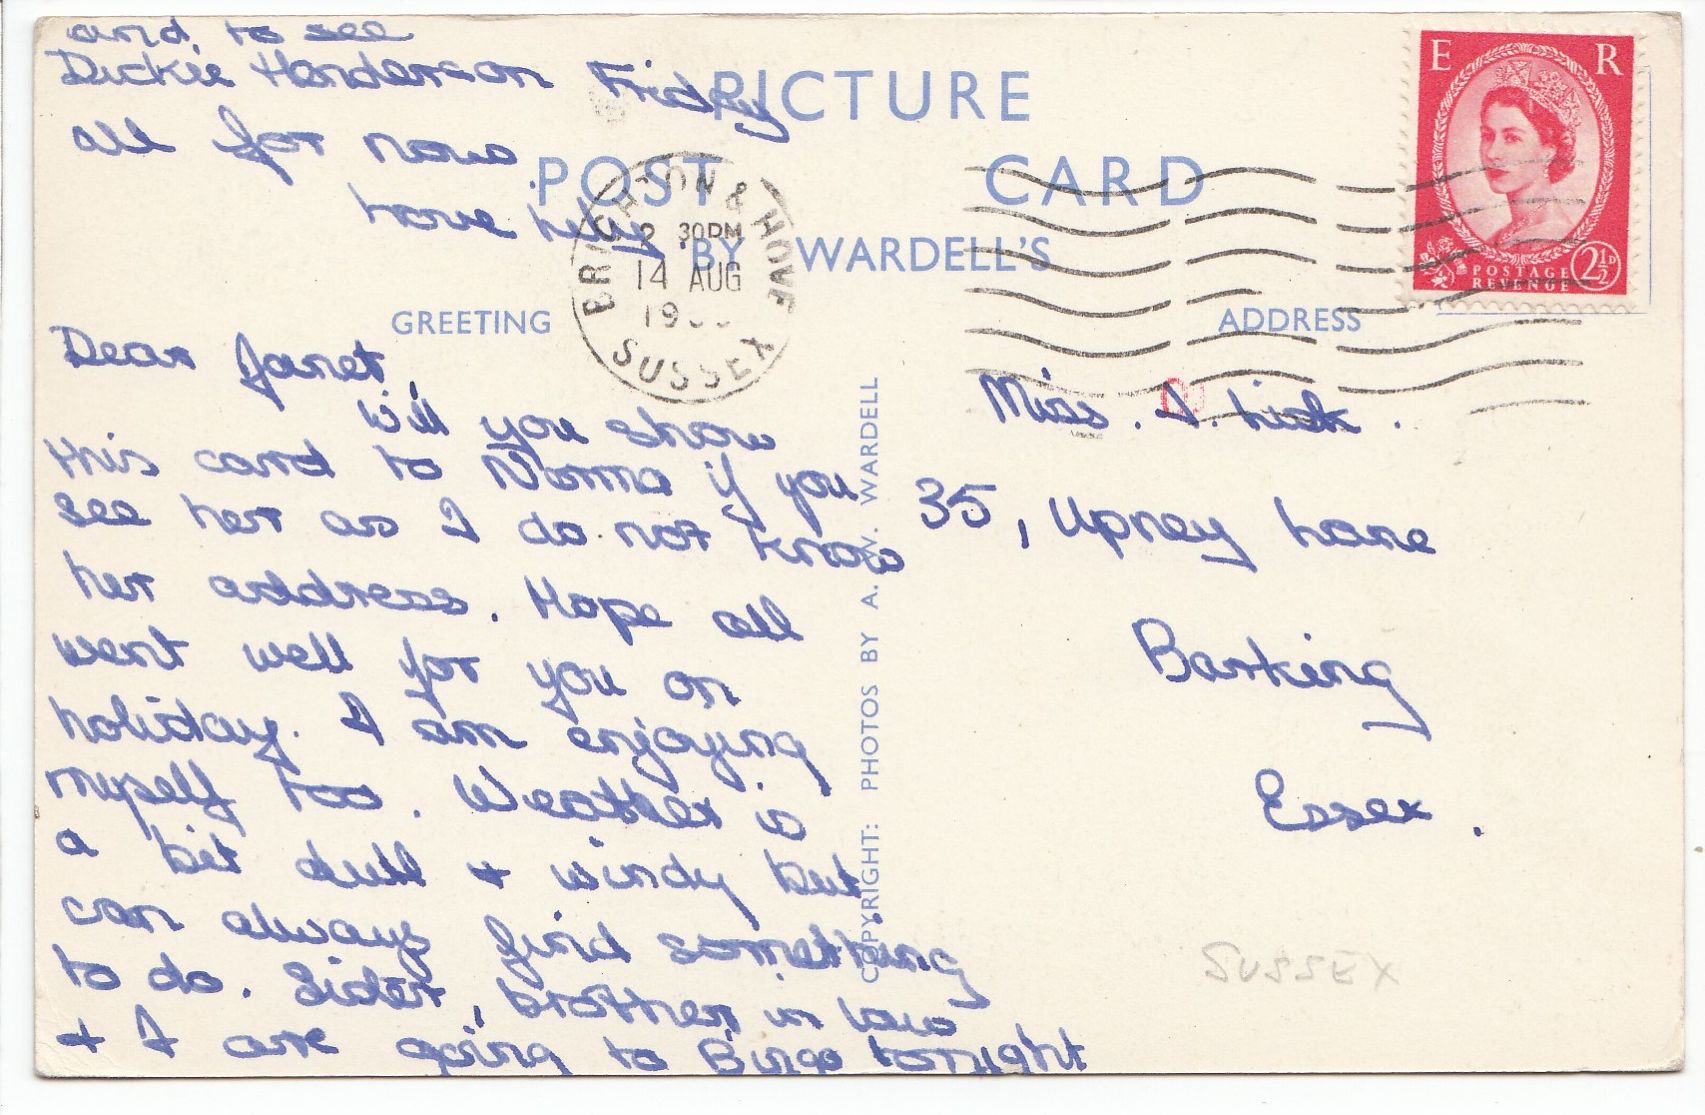 PICTURE
POST CARD
BY WARDELL'S
GREETING
ADDRESS
E R
POSTAGE
REVENUE
2½D
BRIGHTON & HOVE
30PM
14 AUG
SUSSEX
Dear Janet,
Will you show
this card to Norma if you
see her as I do not know
her address. Hope all
went well for you on
holiday. I am enjoying
myself too. Weather is
a bit dull & windy but
can always find something
to do. Sister, brother in law
& I are going to Bingo tonight
and to see
Dickie Henderson Friday
all for now
love
COPYRIGHT: PHOTOS BY A. W. WARDELL
Miss. J.
35, Upney Lane
Barking
Essex.
SUSSEX